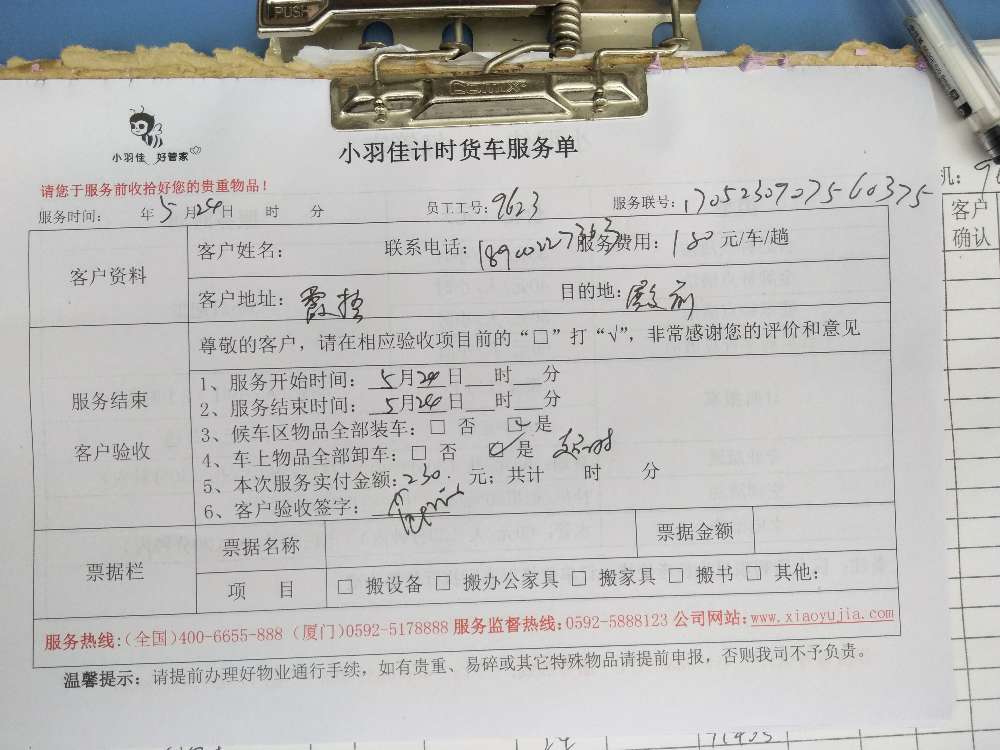 PUSH
小羽佳 好管家
小羽佳计时货车服务单
请您于服务前收拾好您的贵重物品！
服务时间： 年5月24日 时 分 员工工号：9623 服务联号：170523090756 0375
机：
客户确认
客户资料
客户姓名： 联系电话：18900227363 服务费用：180元/车/趟
客户地址：霞梧 目的地：殿前
服务结束
客户验收
尊敬的客户，请在相应验收项目前的“□”打“√”，非常感谢您的评价和意见
1、服务开始时间：5月24日___时___分
2、服务结束时间：5月24日___时___分
3、候车区物品全部装车：□ 否 ☑ 是
4、车上物品全部卸车：□ 否 ☑ 是
5、本次服务实付金额：230 元；共计 时 分
6、客户验收签字：
票据栏
票据名称 票据金额
项 目 □ 搬设备 □ 搬办公家具 □ 搬家具 □ 搬书 □ 其他：
服务热线：（全国）400-6655-888（厦门）0592-5178888 服务监督热线：0592-5888123 公司网站：www.xiaoyujia.com
温馨提示：请提前办理好物业通行手续，如有贵重、易碎或其它特殊物品请提前申报，否则我司不予负责。